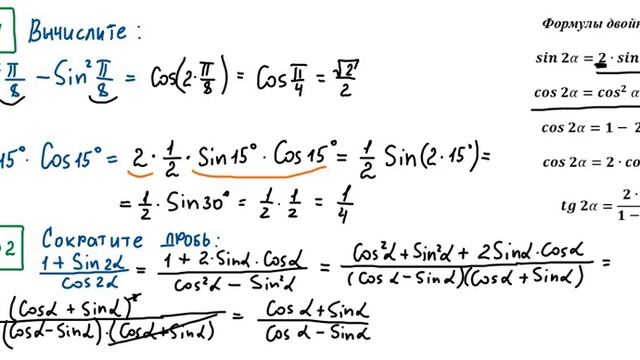 Вычислите:
² π/8 − Sin² π/8 = Cos(2·π/8) = Cos π/4 = √2/2
15° · Cos15° = 2 · 1/2 · Sin15° · Cos15° = 1/2 Sin(2·15°) =
= 1/2 · Sin30° = 1/2 · 1/2 = 1/4
2 Сократите дробь:
(1 + Sin2α)/(cos2α) = (1 + 2·Sinα·Cosα)/(cos²α − Sin²α) = (Cos²α + Sin²α + 2Sinα·Cosα)/((Cosα − Sinα)(Cosα + Sinα)) =
(Cosα + Sinα)²/((Cosα − Sinα)·(Cosα + Sinα)) = (Cosα + Sinα)/(Cosα − Sinα)
Формулы двой
sin 2α = 2 · sin
cos 2α = cos² α
cos 2α = 1 − 2
cos 2α = 2 · co
tg 2α = 2 ·/1 −